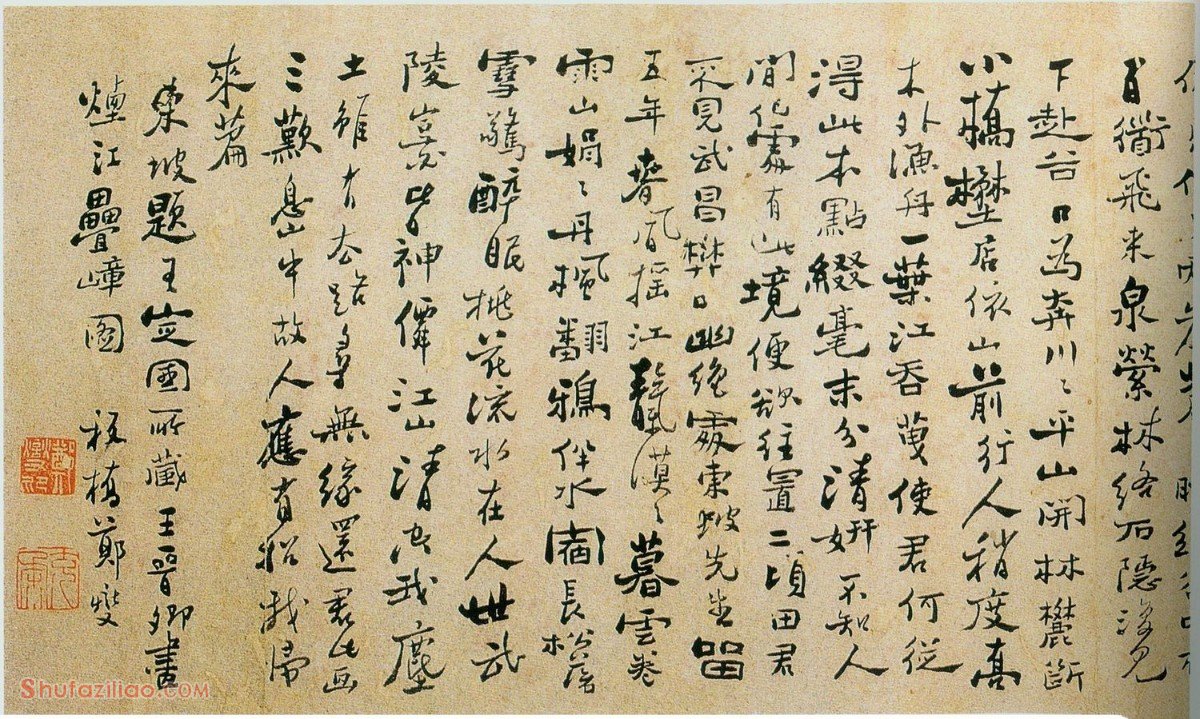 百衜飛来泉縈林絡石隱復見
下赴谷口為奔川〻平山開林麓斷
小橋壄店依山前行人稍度喬
木外漁舟一葉江吞天使君何從
得此本點綴毫末分清妍不知人
間何處有此境便欲往置二頃田君
不見武昌樊口幽絕處東坡先生留
五年春風搖江靝漠〻暮雲卷
雨山娟〻丹楓翻鴉伴水宿長松落
雪驚醉眠桃花流水在人世武
陵豈皆神僊江山清空我塵
土雖有去路尋無緣還君此畫
三歎息山中故人應有招我歸
來篇
東坡題王定國所藏王晉卿畫
煙江疊嶂圖 板橋鄭燮
鄭燮印
克柔
Shufaziliao.COM